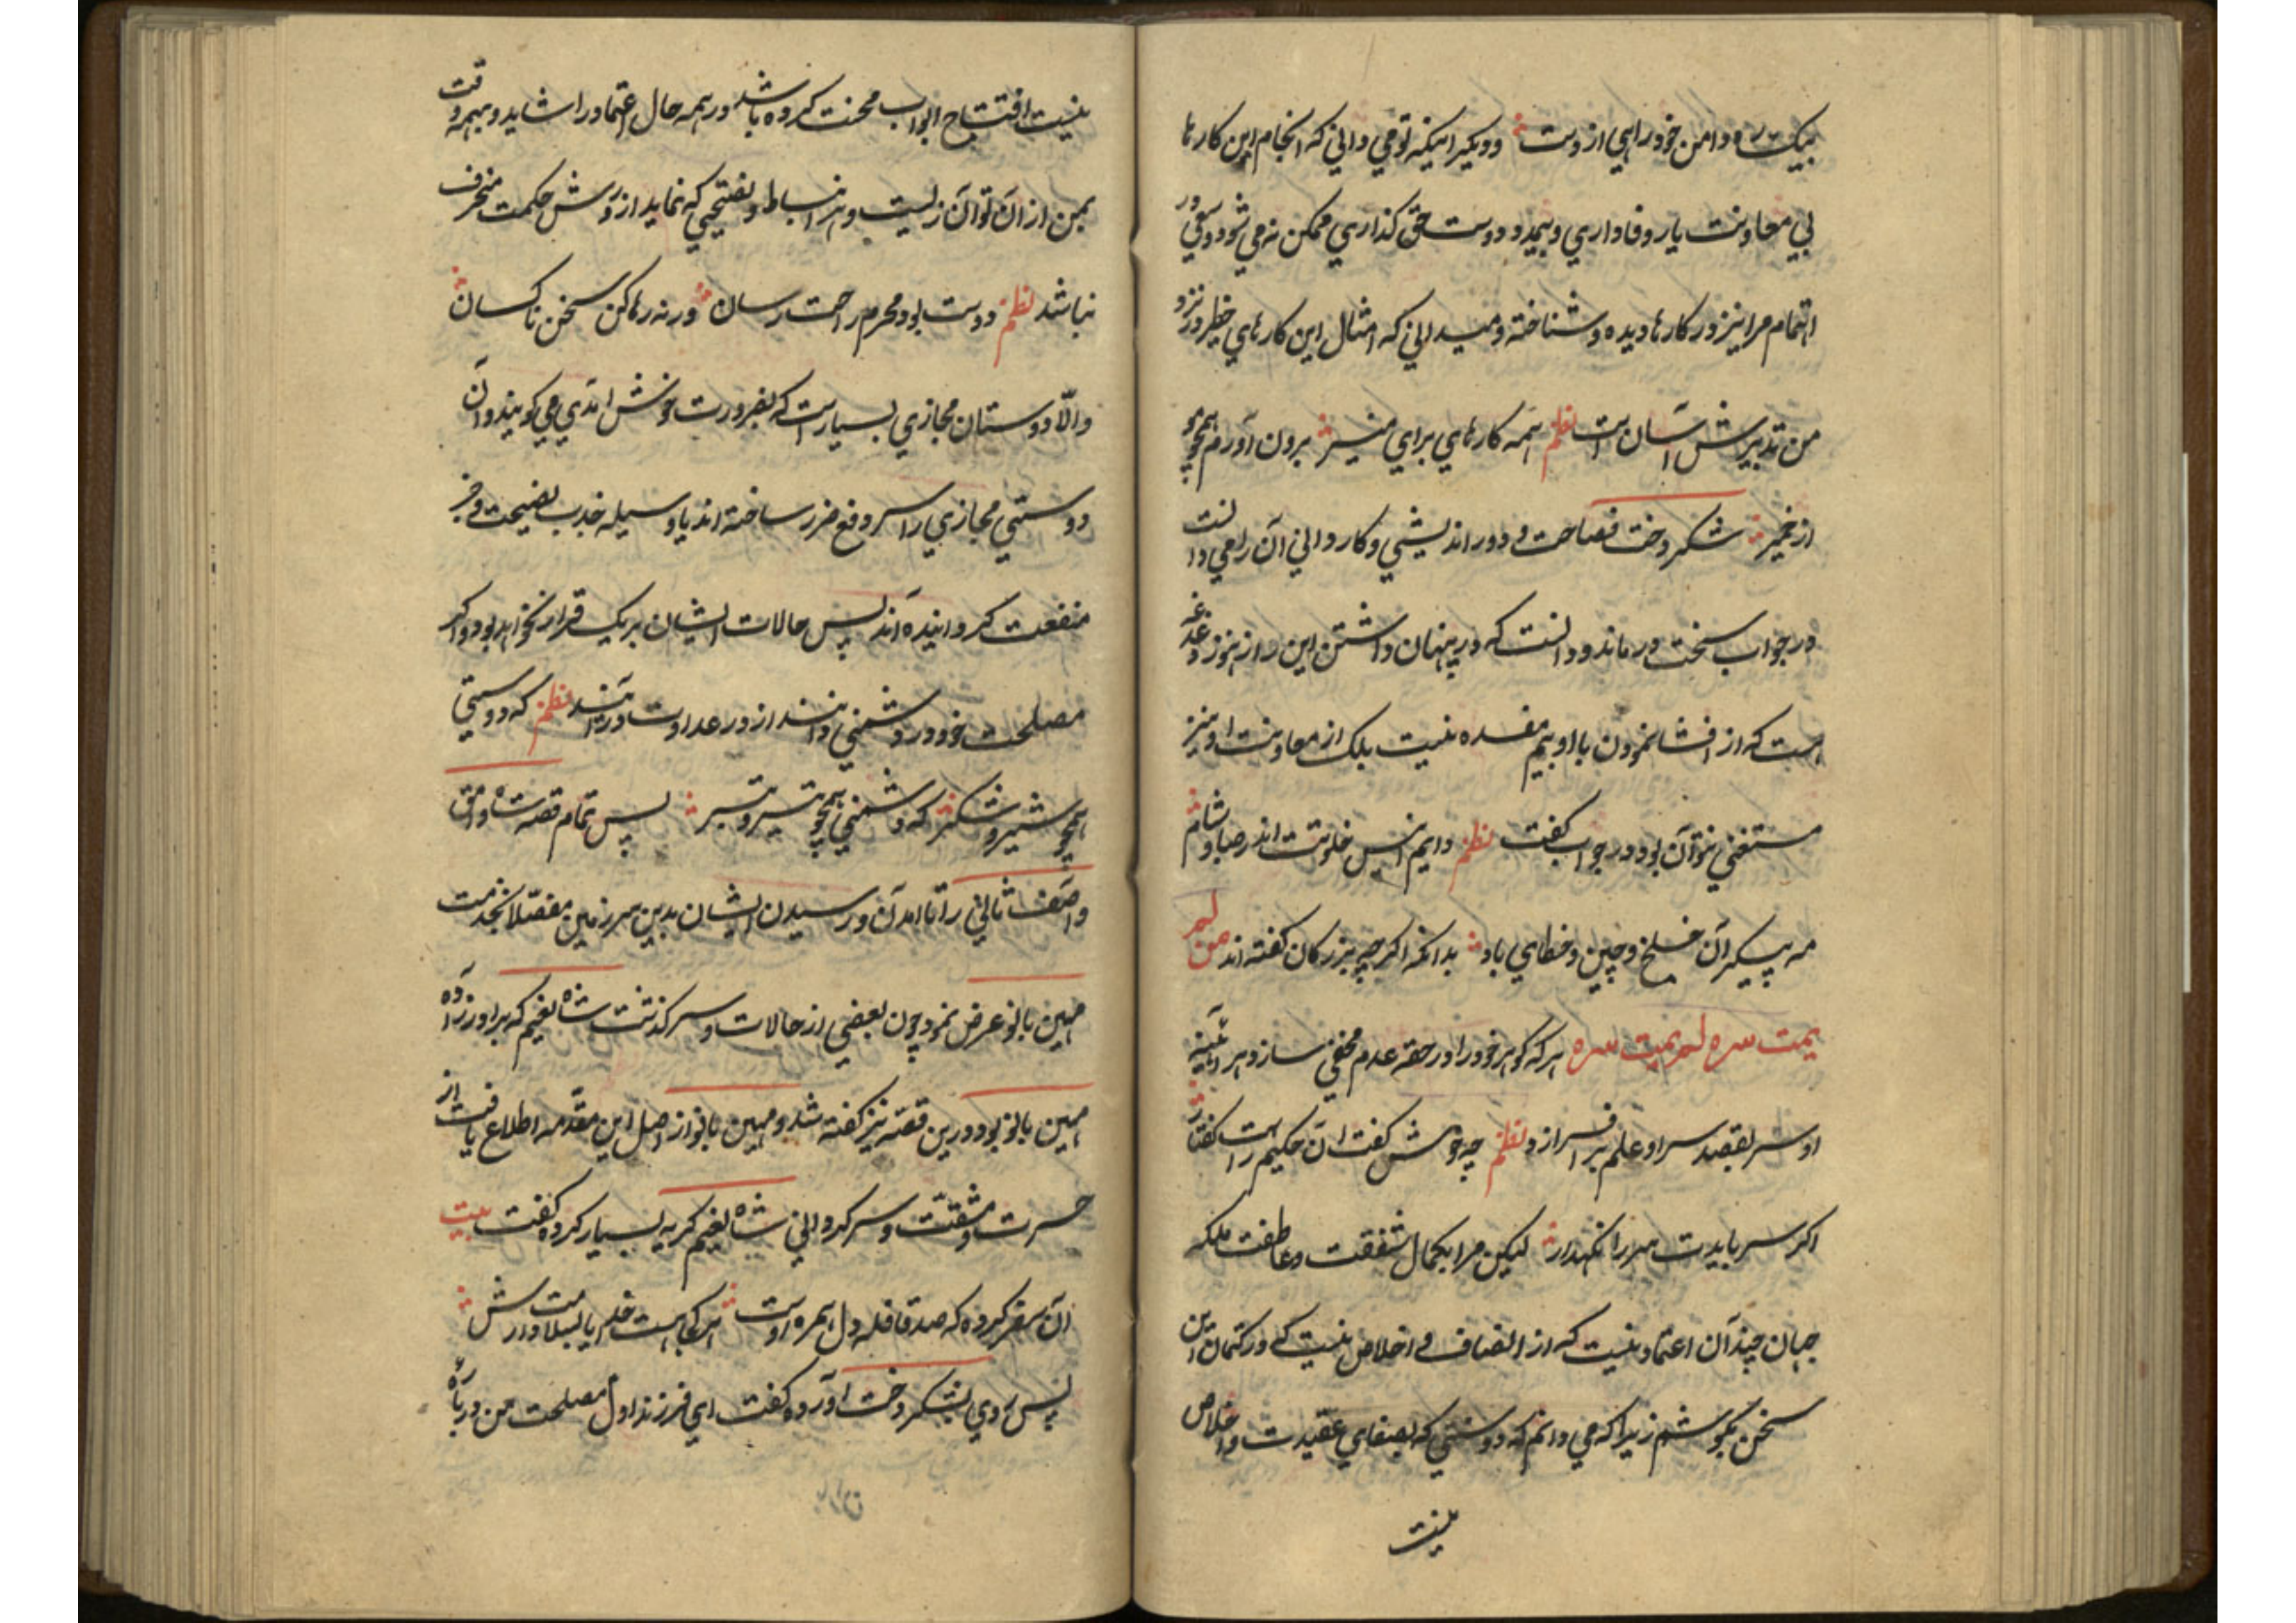 بیک ره دامن خود راهی از دست دویکیر اینکه تو می دانی که انجام این کارها
بی معاونت یار وفاداری و همدرد دوست حق گذاری ممکن نه می شود و سعی در
اهتمام مرا نیز در کارها دیده و شناخته و میدانی که امثال این کارهای خطر در نزد
من تدبیرش آسان است نظم همه کارهای برای منیر برون آورم همچو مو
از خمیر شکر دخت فصاحت و دوراندیشی و کاردانی آن را می دانست
در جواب سخت درماند و دانست که در پنهان داشتن این راز هنوز دغدغه
هست که از افشا نمودن با او بیم مفسده نیست بلک از معاونت او نیز
مستغنی نتوان بود در جواب گفت نظم دایم انیس خلوتت اندر صبا و شام
مه پیکران خلخ و چین و خطای باد بدانکه اکرچه بزرکان کفته اند من لم
یمت سره لم یمت سره هر که کوهر خود را در حقه عدم مخفی سازد هر آئینه
او سر بقصد سر او علم برافرازد نظم چه خوش کفت آن حکیم راست کفتار
اکر سر بایدت سر را نکهدار لیکن مرا بکمال شفقت و عاطفت ملکه
جهان چندان اعتماد نیست که از انصاف و اخلاص نیست که در کتمان این
سخن بکوشم زیرا که می دانم که دوستی که بصفای عقیدت و اخلاص
نیست
نیست افتتاح ابواب محنت کرده باشد در همه حال اعتماد را شاید و بهروقت
یمن از آن توان زیست و هر انبساط و نصیحتی که نماید از روش حکمت منحرف
نباشد نظم دوست بود محرم راحت رسان ورنه رها کن سخن ناکسان
والّا دوستان مجازی بسیار است که بضرورت خوش آمدی می کویند و آن
دوستی مجازی را سر دفع ضرر ساخته اند یا وسیله جذب نصیحت و جز
منفعت کردانیده اند پس حالات ایشان بر یک قرار نخواهد بود و اکر
مصلحت خود در دشمنی دانند از در عداوت درآیند نظم که دوستی
همچو شیر و شکر که دشمنی همچو تیر و تبر پس تمام قصه شاه وامق
و آصف ثانی را تا آمدن و رسیدن ایشان بدین سرزمین مفصلا بخدمت
مهین بانو عرض نمود چون بعضی از حالات و سرکذشت شاه نغیم که برادرزاده
مهین بانو بود درین قصه نیز کفته شد و مهین بانو از اصل این مقدمه اطلاع یافت از
حسرت و مشقت و سرکردانی شاه نغیم کریه بسیار کرده کفت بیت
آن سفر کرده که صد قافله دل همره اوست هر کجا هست خدایا بسلامت دارش
پس روی بشکر دخت آورده کفت ای فرزند اول مصلحت من درباره